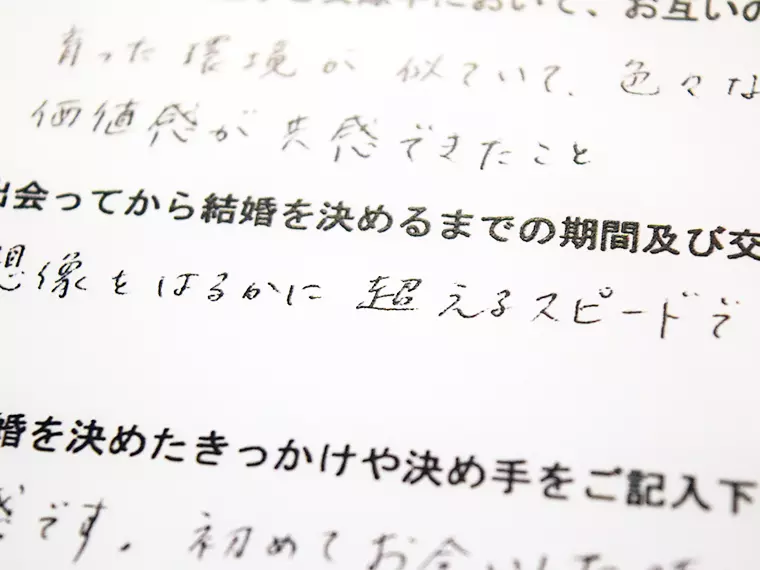 において、お互いの
育った環境が似ていて、色々な
価値感が共感できたこと
出会ってから結婚を決めるまでの期間及び交
想像をはるかに超えるスピードで
婚を決めたきっかけや決め手をご記入下
感です。初めてお会いした時